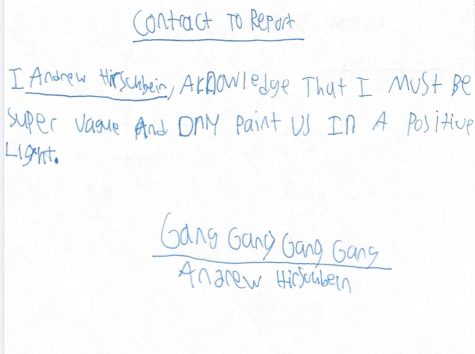 Contract To Report
I Andrew Hirschbein, Aknowledge That I Must Be
Super Vague And Only Paint Us In A Positive
Light.
Gang Gang Gang Gang
Andrew Hirschbein